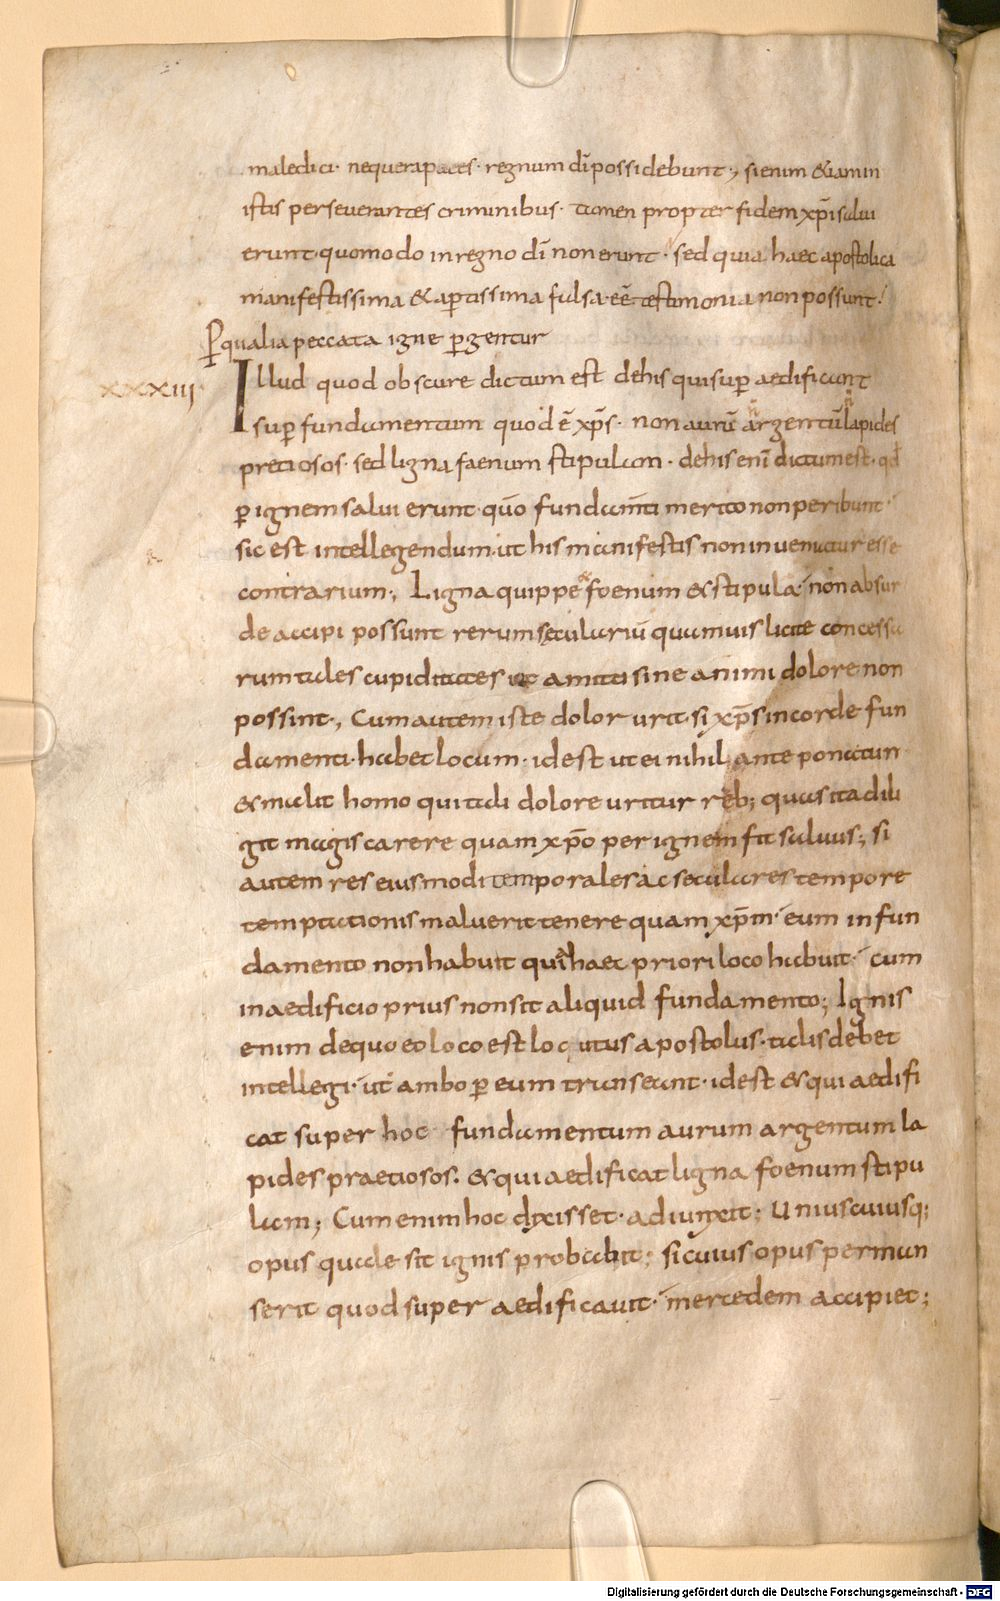 maledici· neque rapaces· regnum dī possidebunt·, si enim & iam in
istis perseverantes criminibus· tamen propter fidem xp̄i salui
erunt· quomodo in regno dī non erunt· sed quia haec apostolica
manifestissima & apertissima falsa· eē testimonia non possunt·
P qualia peccata igne purgentur
XXXIII Illud quod obscure dictum est de his qui sup aedificant
sup fundamentum quod ē xp̄s· non aurū argentū lapides
pretiosos· sed ligna faenum stipulam· de his enī dictum est· qđ
p ignem salui erunt· quō fundamti merito non peribunt·
sic est intellegendum· ut his manifestis non inueniatur esse
contrarium·, Ligna quippe & foenum & stipula· non absur
de accipi possunt rerum sęculariū quamuis licite concessa
rum tales cupiditates ut amitti sine animi dolore non
possint·, Cum autem iste dolor urit· si xp̄s in corde fun
damenti· habet locum· id est ut ei nihil ante ponatur
& malit homo qui tali dolore uritur reb; quas ita dili
git magis carere quam xp̄o per ignem fit saluus; si
autem res eiusmodi temporales ac seculares tempore
temptationis maluerit tenere quam xp̄m· eum in fun
damento non habuit qui haec priori loco habuit· cum
in aedificio prius non sit aliquid fundamento; Ignis
enim de quo eo loco est locutus apostolus· talis debet
intellegi· ut ambo p eum transeant· id est & qui aedifi
cat super hoc fundamentum aurum argentum la
pides praetiosos· & qui aedificat ligna foenum stipu
lam; Cum enim hoc dixisset· adiunxit; Uniuscuiusq;
opus quale sit ignis probabit; si cuius opus perman
serit quod super aedificauit· mercedem accipiet;
Digitalisierung gefördert durch die Deutsche Forschungsgemeinschaft - DFG